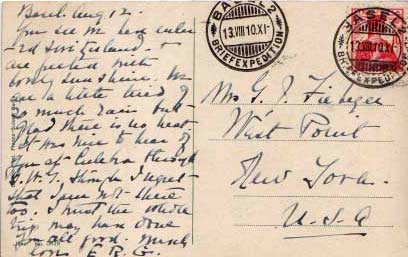 Basel. Aug 12.
You see we have enter-
-ed Switzerland. &
are greeted with
lovely sunshine. We
are a little tired of
so much rain but
glad there is no heat
It was nice to hear of
you at Culebra through
G. W. G. Though I regret
that I was not there
too. I trust the whole
trip may have done
you all good. Much
love E. R. G.
BASEL 2
13.VIII.10.XI-
BRIEFEXPEDITION
BASEL 2
13.VIII.10.XI-
BRIEFEXPEDITION
Mrs G. J. Fiebeger
West Point
New York.
U.S.A